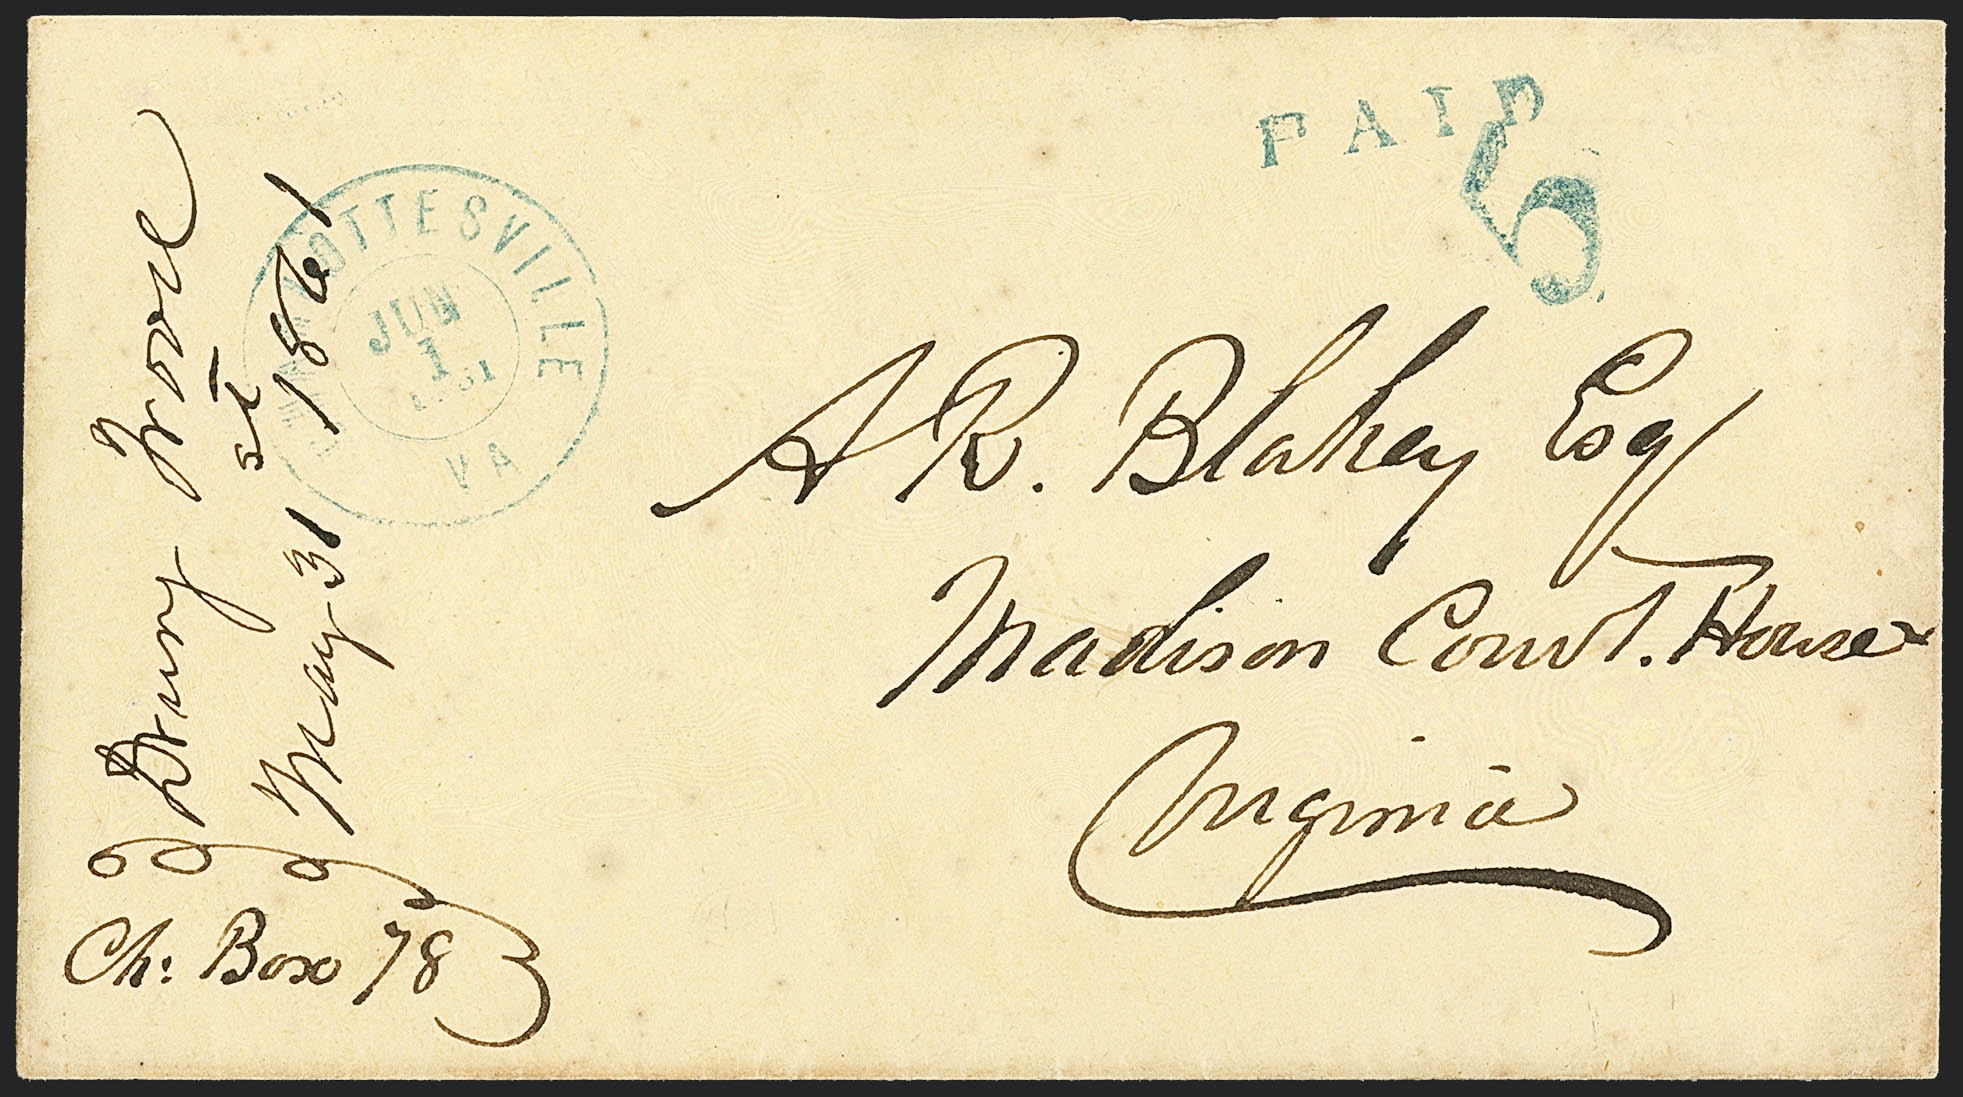 PAID
5
CHARLOTTESVILLE
JUN
1
1861
VA
A R. Blakey Esq
Madison Court. House
Virginia
Drury Wood
May 31st 1861
Ch: Box 78